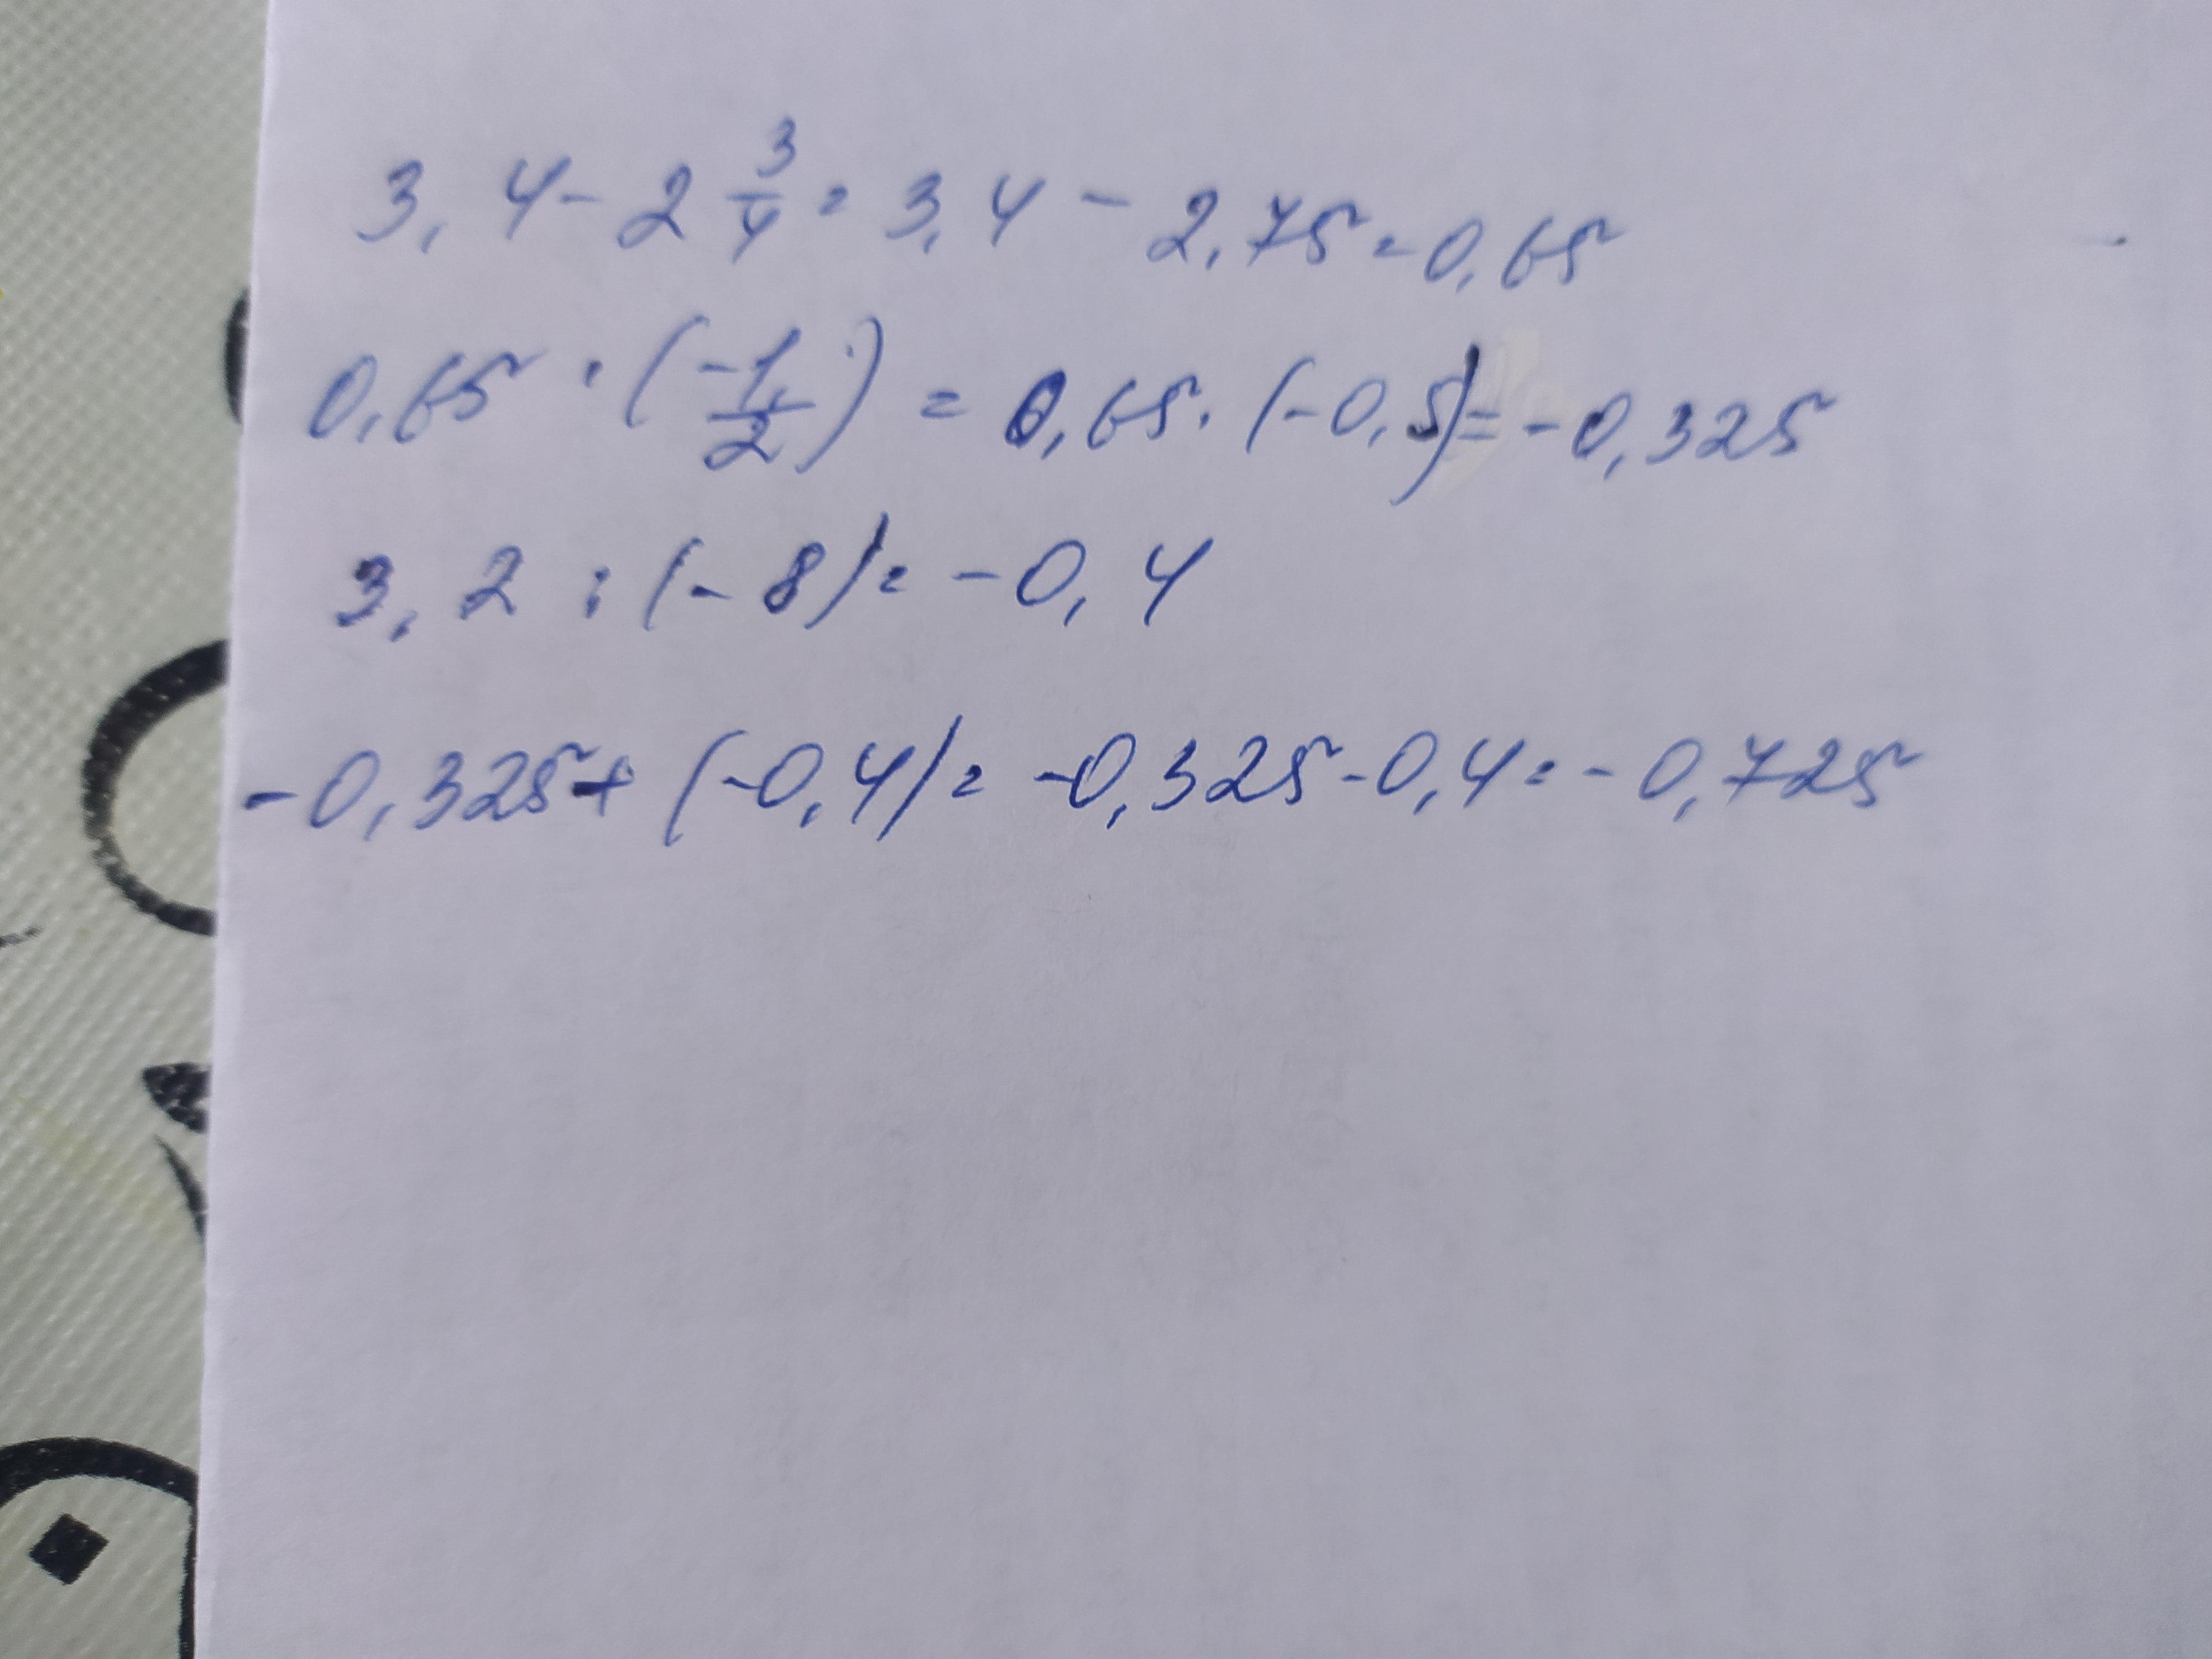 3,4 - 2 3/4 = 3,4 - 2,75 = 0,65
0,65 · (-1/2) = 0,65 · (-0,5) = -0,325
3,2 : (-8) = -0,4
-0,325 + (-0,4) = -0,325 - 0,4 = -0,725